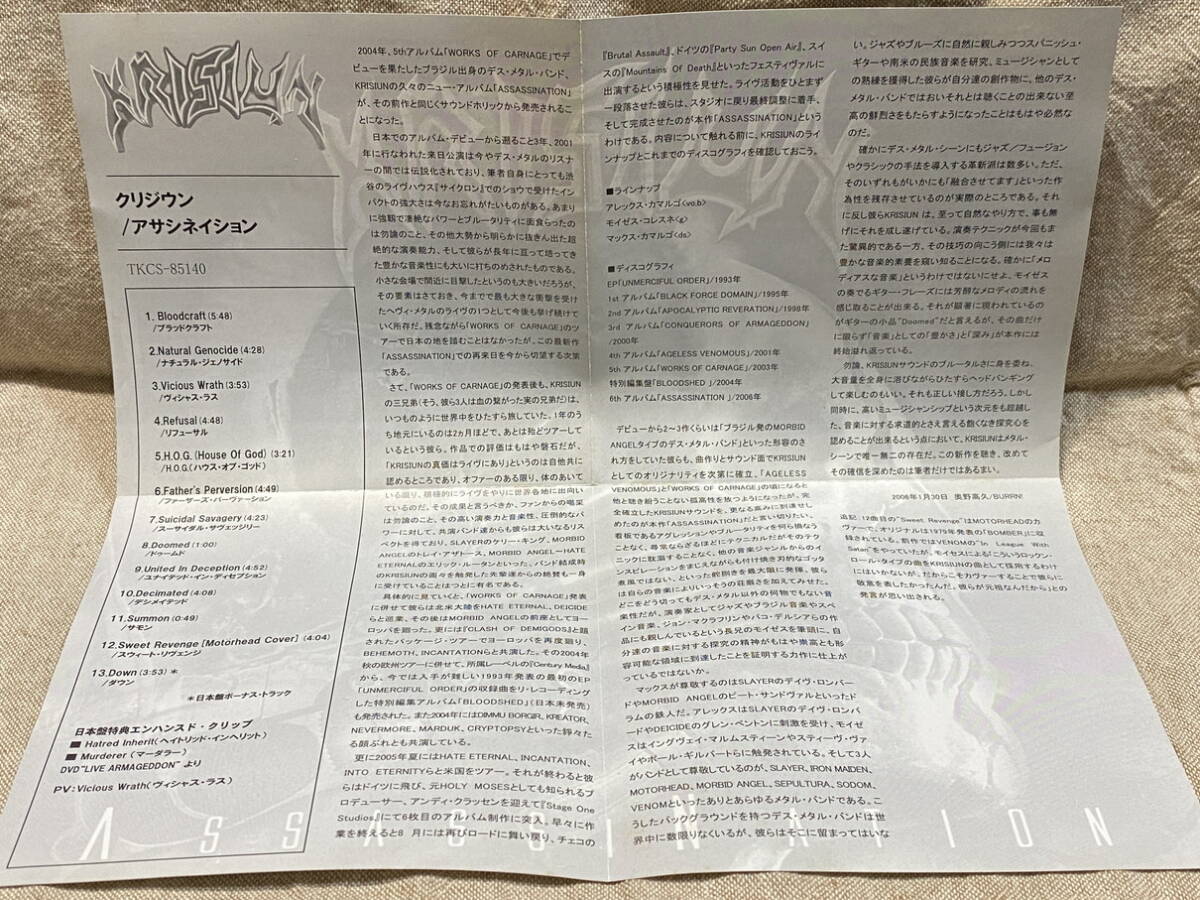 KRISIUN
クリジウン
/アサシネイション
TKCS-85140
1. Bloodcraft(5:48)
/ブラッドクラフト
2.Natural Genocide(4:28)
/ナチュラル・ジェノサイド
3.Vicious Wrath(3:53)
/ヴィシャス・ラス
4.Refusal(4:48)
/リフューサル
5.H.O.G.(House Of God) (3:21)
/H.O.G.(ハウス・オブ・ゴッド)
6.Father's Perversion(4:49)
/ファーザーズ・パーヴァーション
7.Suicidal Savagery(4:23)
/スーサイダル・サヴェッジリー
8.Doomed(1:00)
/ドゥームド
9.United In Deception(4:52)
/ユナイテッド・イン・ディセプション
10.Decimated(4:08)
/デシメイテッド
11.Summon(0:49)
/サモン
12.Sweet Revenge[Motorhead Cover](4:04)
/スウィート・リヴェンジ
13.Down(3:53)*
/ダウン
*日本盤ボーナス・トラック
日本盤特典エンハンスド・クリップ
■ Hatred Inherit(ヘイトリッド・インヘリット)
■ Murderer(マーダラー)
DVD"LIVE ARMAGEDDON"より
PV:Vicious Wrath(ヴィシャス・ラス)
2004年、5thアルバム「WORKS OF CARNAGE」でデ
ビューを果たしたブラジル出身のデス・メタル・バンド、
KRISIUNの久々のニュー・アルバム「ASSASSINATION」
が、その前作と同じくサウンドホリックから発売されるこ
とになった。
日本でのアルバム・デビューから遡ること3年、2001
年に行なわれた来日公演は今やデス・メタルのリスナ
ーの間では伝説化されており、筆者自身にとっても渋
谷のライヴハウス『サイクロン』でのショウで受けたイン
パクトの強大さは今なお忘れがたいものがある。あまり
に強靭で凄絶なパワーとブルータリティに面食らったの
は勿論のこと、その他大勢から明らかに抜きん出た超
絶的な演奏能力、そして彼らが長年に亘って培ってき
た豊かな音楽性にも大いに打ちのめされたものである。
小さな会場で間近に目撃したというのも大きいだろうが、
その要素はさておき、今までで最も大きな衝撃を受け
たヘヴィ・メタルのライヴの1つとして今後も挙げ続けて
いく所存だ。残念ながら「WORKS OF CARNAGE」のツ
アーで日本の地を踏むことはなかったが、この最新作
「ASSASSINATION」での再来日を今から切望する次第
である。
さて、「WORKS OF CARNAGE」の発表後も、KRISIUN
の三兄弟(そう、彼ら3人は血の繋がった実の兄弟だ)は、
いつものように世界中をひたすら旅していた。1年のう
ち地元にいるのは2ヵ月ほどで、あとは殆どツアーして
いるという彼ら。作品での評価はもはや磐石だが、
「KRISIUNの真価はライヴにあり」というのは自他共に
認めるところであり、オファーのある限り、体のあいて
いる限り、積極的にライヴをやりに世界各地に出向い
ているのだ。その成果と言うべきか、ファンからの喝采
は勿論のこと、その高い演奏力と音楽性、圧倒的なパ
ワーに対して、共演バンド達からも彼らは大いなるリス
ペクトを得ており、SLAYERのケリー・キング、MORBID
ANGELのトレイ・アザトース、MORBID ANGEL～HATE
ETERNALのエリック・ルータンといった、バンド結成時
のKRISIUNの面々を触発した先輩達からの絶賛も一身
に受けていることはつとに有名である。
具体的に見ていくと、「WORKS OF CARNAGE」発表
に併せて彼らは北米大陸をHATE ETERNAL、DEICIDE
らと巡業、その後はMORBID ANGELの前座としてヨー
ロッパを廻った。更には『CLASH OF DEMIGODS』と題
されたパッケージ・ツアーでヨーロッパを再度廻り、
BEHEMOTH、INCANTATIONらと共演した。その2004年
秋の欧州ツアーに併せて、所属レーベルの『Century Media』
から、今では入手が難しい1993年発表の最初のEP
「UNMERCIFUL ORDER」の収録曲をリ・レコーディング
した特別編集アルバム「BLOODSHED」(日本未発売)
も発売された。また2004年にはDIMMU BORGIR、KREATOR、
NEVERMORE、MARDUK、CRYPTOPSYといった錚々た
る顔ぶれとも共演している。
更に2005年夏にはHATE ETERNAL、INCANTATION、
INTO ETERNITYらと米国をツアー。それが終わると彼
らはドイツに飛び、元HOLY MOSESとしても知られるプ
ロデューサー、アンディ・クラッセンを迎えて『Stage One
Studios』にて6枚目のアルバム制作に突入。早々に作
業を終えると8月には再びロードに舞い戻り、チェコの
『Brutal Assault』、ドイツの『Party Sun Open Air』、スイ
スの『Mountains Of Death』といったフェスティヴァルに
出演するという積極性を見せた。ライヴ活動をひとまず
一段落させた彼らは、スタジオに戻り最終調整に着手、
そして完成させたのが本作「ASSASSINATION」という
わけである。内容について触れる前に、KRISIUNのライ
ンナップとこれまでのディスコグラフィを確認しておこう。
■ラインナップ
アレックス・カマルゴ<vo,b>
モイゼス・コレスネ<g>
マックス・カマルゴ<ds>
■ディスコグラフィ
EP「UNMERCIFUL ORDER」/1993年
1st アルバム「BLACK FORCE DOMAIN」/1995年
2nd アルバム「APOCALYPTIC REVERATION」/1998年
3rd アルバム「CONQUERORS OF ARMAGEDDON」
/2000年
4th アルバム「AGELESS VENOMOUS」/2001年
5th アルバム「WORKS OF CARNAGE」/2003年
特別編集盤「BLOODSHED 」/2004年
6th アルバム「ASSASSINATION 」/2006年
デビューから2～3作くらいは「ブラジル発のMORBID
ANGELタイプのデス・メタル・バンド」といった形容のさ
れ方をしていた彼らも、曲作りとサウンド面でKRISIUN
としてのオリジナリティを次第に確立、「AGELESS
VENOMOUS」と「WORKS OF CARNAGE」の頃になると
他と紛うことない孤高性を放つようになったが、完
全確立したKRISIUNサウンドを、更なる高みに到達せし
めたのが本作「ASSASSINATION」だと言い切りたい。
看板であるアグレッションやブルータリティを何ら損なう
ことなく、尋常ならざるほどにテクニカルだがそのテク
ニックに耽溺することなく、他の音楽ジャンルからのイ
ンスピレーションをまじえながらも付け焼き刃的なゴッタ
煮風ではない、といった舵捌きを最大限に発揮。彼ら
は自らの音楽によりいっそうの苛烈さを加えてみせた。
どこをどう切ってもデス・メタル以外の何物でもない音
楽性だが、演奏家としてジャズやブラジル音楽やスペ
イン音楽、ジョン・マクラフリンやパコ・デルシアらの作
品にも親しんでいるという長兄のモイゼスを筆頭に、自
分達の音楽に対する探究の精神がもはや崇高とも形
容可能な領域に到達したことを証明する力作に仕上が
っているではないか。
マックスが尊敬するのはSLAYERのデイヴ・ロンバー
ドやMORBID ANGELのピート・サンドヴァルといったド
ラムの鉄人だ。アレックスはSLAYERのデイヴ・ロンバ
ードやDEICIDEのグレン・ベントンに刺激を受け、モイゼ
スはイングヴェイ・マルムスティーンやスティーヴ・ヴァ
イやポール・ギルバートらに触発されている。そして3人
がバンドとして尊敬しているのが、SLAYER、IRON MAIDEN、
MOTORHEAD、MORBID ANGEL、SEPULTURA、SODOM、
VENOMといったありとあらゆるメタル・バンドである。こ
うしたバックグラウンドを持つデス・メタル・バンドは世
界中に数限りなくいるが、彼らはそこに留まってはいな
い。ジャズやブルーズに自然に親しみつつスパニッシュ・
ギターや南米の民族音楽を研究、ミュージシャンとして
の熟練を獲得した彼らが自分達の創作物に、他のデス・
メタル・バンドではおいそれとは聴くことの出来ない至
高の鮮烈さをもたらすようになったことはもはや必然な
のだ。
確かにデス・メタル・シーンにもジャズ/フュージョン
やクラシックの手法を導入する革新派は数多い。ただ、
そのいずれもがいかにも「融合させてます」といった作
為性を残存させているのが実際のところである。それ
に反し彼らKRISIUN は、至って自然なやり方で、事も無
げにそれを成し遂げている。演奏テクニックが今回もま
た驚異的である一方、その技巧の向こう側には我々は
豊かな音楽的素養を窺い知ることになる。確かに「メロ
ディアスな音楽」というわけではないにせよ、モイゼス
の奏でるギター・フレーズには芳醇なメロディの流れを
感じ取ることが出来る。それが顕著に現われているの
がギターの小品"Doomed"だと言えるが、その曲だけ
に限らず「音楽」としての「豊かさ」と「深み」が本作には
終始溢れ返っている。
勿論、KRISIUNサウンドのブルータルさに身を委ね、
大音量を全身に浴びながらひたすらヘッドバンギング
して楽しむのもいい。それも正しい接し方だろう。しかし
同時に、高いミュージシャンシップという次元をも超越し
た、音楽に対する求道的とさえ言える飽くなき探究心を
認めることが出来るという点において、KRISIUNはメタル・
シーンで唯一無二の存在だ。この新作を聴き、改めて
その確信を深めたのは筆者だけではあるまい。
2006年1月30日 奥野高久/BURRN!
追記:12曲目の"Sweet Revenge"はMOTORHEADのカ
ヴァーで、オリジナルは1979年発表の「BOMBER」に収
録されている。前作ではVENOMの"In League With
Satan"をやっていたが、モイゼスによる「こういうロックン・
ロール・タイプの曲をKRISIUNの曲として採用するわけ
にはいかないが、だからこそカヴァーすることで彼らに
敬意を表したかったんだ。彼らが元祖なんだから」との
発言が思い出される。
ASSASSINATION